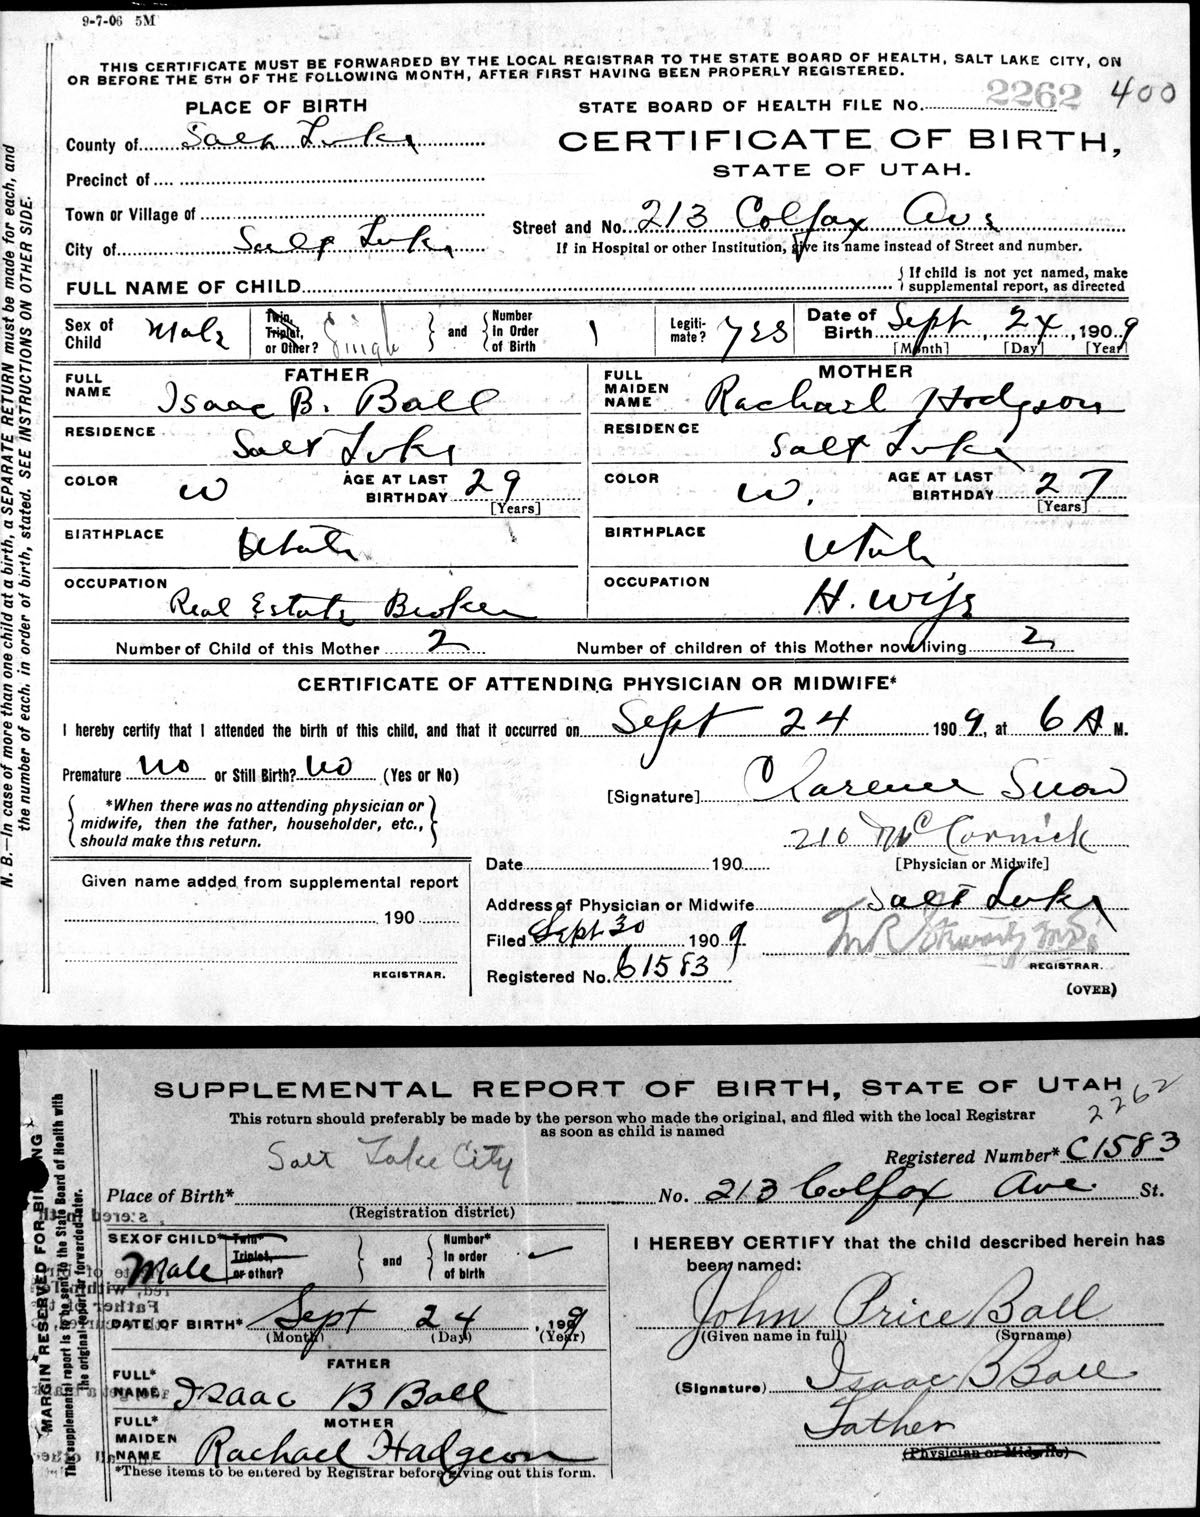 9-7-06 5M
THIS CERTIFICATE MUST BE FORWARDED BY THE LOCAL REGISTRAR TO THE STATE BOARD OF HEALTH, SALT LAKE CITY, ON
OR BEFORE THE 5TH OF THE FOLLOWING MONTH, AFTER FIRST HAVING BEEN PROPERLY REGISTERED.
PLACE OF BIRTH
STATE BOARD OF HEALTH FILE No. 2262 400
County of Salt Lake
CERTIFICATE OF BIRTH,
STATE OF UTAH.
Precinct of
Town or Village of
Street and No. 213 Colfax Ave
City of Salt Lake
If in Hospital or other Institution, give its name instead of Street and number.
FULL NAME OF CHILD
If child is not yet named, make
supplemental report, as directed
Sex of Child Male
Twin, Triplet, or Other? Single
and
Number In Order of Birth 1
Legitimate? Yes
Date of Birth Sept 24, 1909
[Month] [Day] [Year]
FATHER
FULL NAME Isaac B. Ball
RESIDENCE Salt Lake
COLOR W
AGE AT LAST BIRTHDAY 29
[Years]
BIRTHPLACE Utah
OCCUPATION Real Estate Broker
MOTHER
FULL MAIDEN NAME Rachael Hodgson
RESIDENCE Salt Lake
COLOR W.
AGE AT LAST BIRTHDAY 27
[Years]
BIRTHPLACE Utah
OCCUPATION H. Wife
Number of Child of this Mother 2
Number of children of this Mother now living 2
CERTIFICATE OF ATTENDING PHYSICIAN OR MIDWIFE*
I hereby certify that I attended the birth of this child, and that it occurred on Sept 24 1909, at 6 A M.
Premature No or Still Birth? No (Yes or No)
[Signature] Clarence Snow
*When there was no attending physician or
midwife, then the father, householder, etc.,
should make this return.
210 McCornick
[Physician or Midwife]
Date 190
Given name added from supplemental report
190
REGISTRAR.
Address of Physician or Midwife Salt Lake
Filed Sept 30 1909
M R Stewart M.D.
REGISTRAR.
Registered No. C1583
(OVER)
N. B.—In case of more than one child at a birth, a SEPARATE RETURN must be made for each, and
the number of each, in order of birth, stated. SEE INSTRUCTIONS ON OTHER SIDE.
SUPPLEMENTAL REPORT OF BIRTH, STATE OF UTAH
2262
This return should preferably be made by the person who made the original, and filed with the local Registrar
as soon as child is named
Salt Lake City
Registered Number* C1583
Place of Birth*
No. 213 Colfax Ave. St.
(Registration district)
SEX OF CHILD* Male
Twin* Triplet, or other?
and
Number* In order of birth
DATE OF BIRTH* Sept 24, 1909
(Month) (Day) (Year)
FATHER
FULL* NAME Isaac B Ball
MOTHER
FULL* MAIDEN NAME Rachael Hadgson
*These items to be entered by Registrar before giving out this form.
I HEREBY CERTIFY that the child described herein has
been named:
John Price Ball
(Given name in full) (Surname)
(Signature) Isaac B Ball
Father
(Physician or Midwife)
MARGIN RESERVED FOR
This supplemental report is to be sent to the State Board of Health with
the original report or forwarded later.